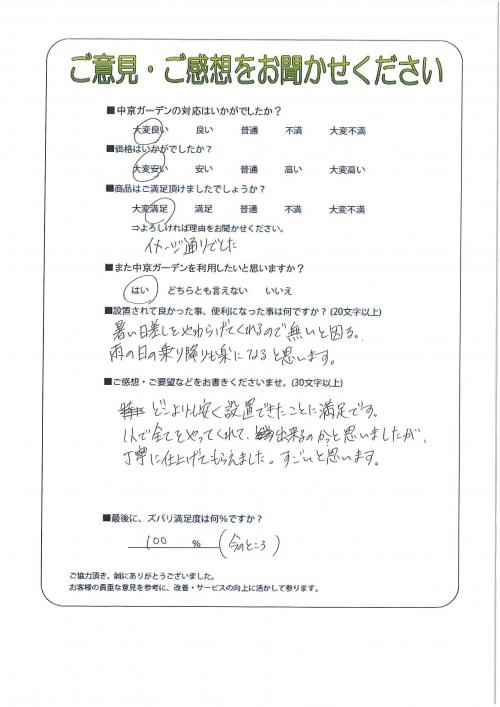 ご意見・ご感想をお聞かせください
■中京ガーデンの対応はいかがでしたか？
大変良い 良い 普通 不満 大変不満
■価格はいかがでしたか？
大変安い 安い 普通 高い 大変高い
■商品はご満足頂けましたでしょうか？
大変満足 満足 普通 不満 大変不満
⇒よろしければ理由をお聞かせください。
イメージ通りでした
■また中京ガーデンを利用したいと思いますか？
はい どちらとも言えない いいえ
■設置されて良かった事、便利になった事は何ですか？(20文字以上)
暑い日差しをやわらげてくれるので無いと困る。
雨の日の乗り降りも楽になると思います。
■ご感想・ご要望などをお書きくださいませ。(30文字以上)
どこよりも安く設置できたことに満足です。
1人で全てをやってくれて、出来るのか？と思いましたが、
丁寧に仕上げてもらえました。すごいと思います。
■最後に、ズバリ満足度は何％ですか？
100 % (今のところ)
ご協力頂き、誠にありがとうございました。
お客様の貴重な意見を参考に、改善・サービスの向上に活かして参ります。